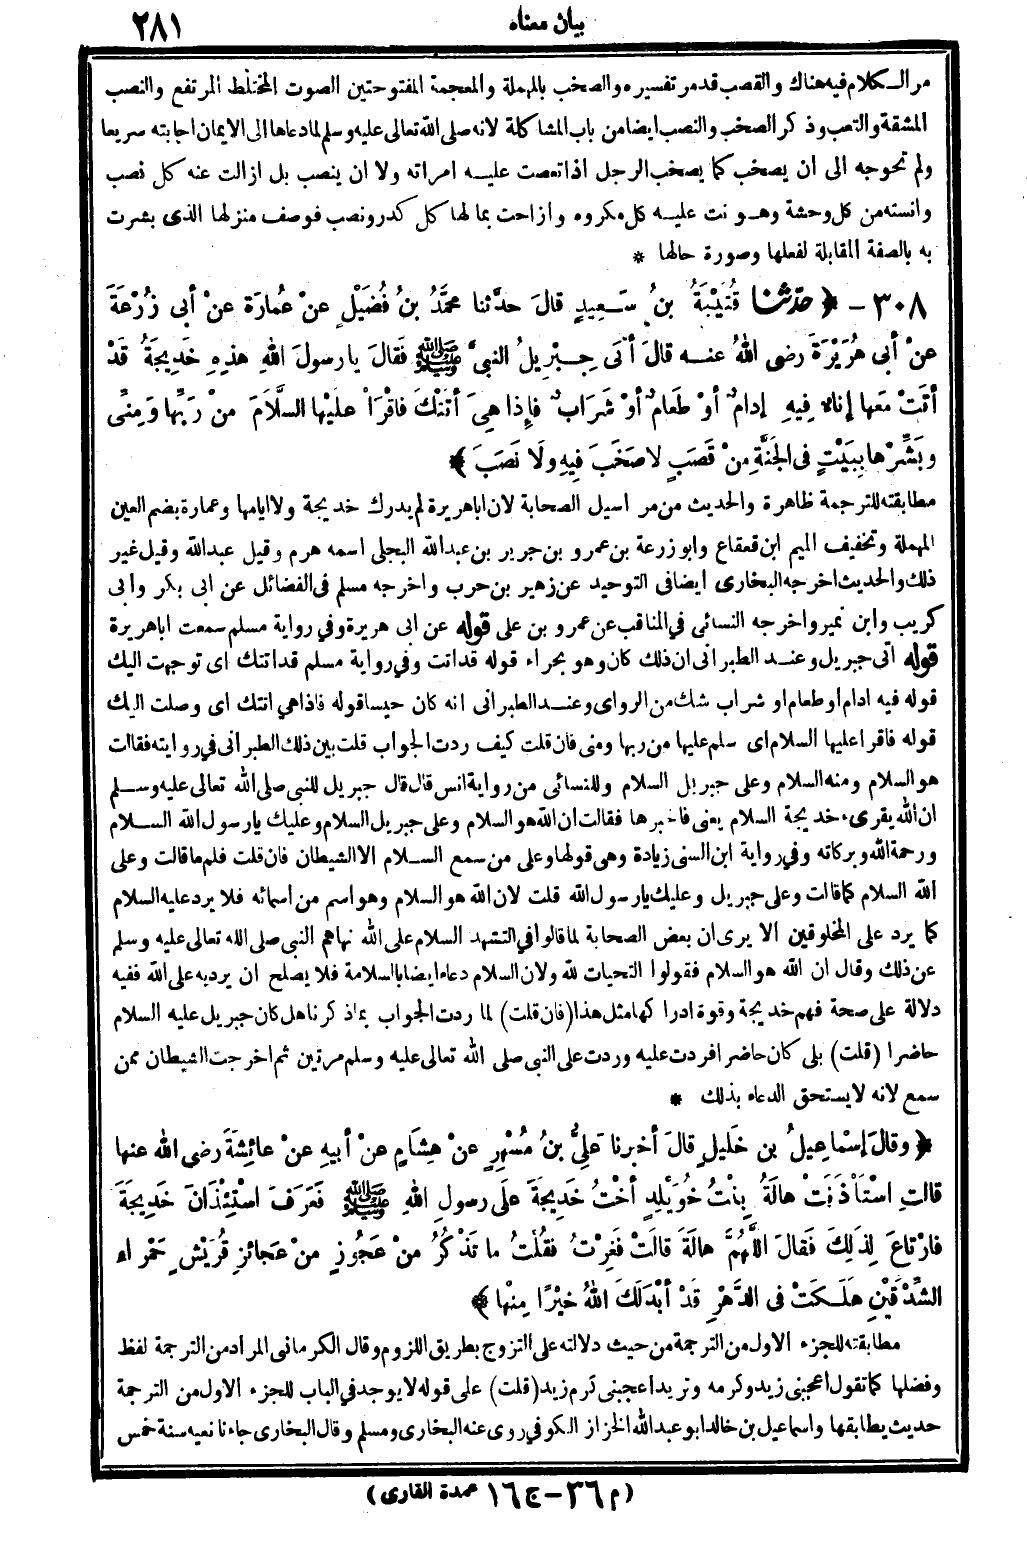 بيان معناه ٢٨١
مر الكلام فيه هناك والقصب قد مر تفسيره والصخب بالمهملة والمعجمة المفتوحتين الصوت المختلط المرتفع والنصب
المشقة والتعب وذكر الصخب والنصب ايضا من باب المشاكلة لانه صلى الله تعالى عليه وسلم لما دعاها الى الايمان اجابته سريعا
ولم تحوجه الى ان يصخب كما يصخب الرجل اذا تعصت عليه امراته ولا ان ينصب بل ازالت عنه كل نصب
وانسته من كل وحشة وهونت عليه كل مكروه وازاحت بما لها كل كدر ونصب فوصف منزلها الذى بشرت
به بالصفة المقابلة لفعلها وصورة حالها *
٣٠٨ - ﴿ حدّثنا قُتَيْبَةُ بنُ سَعِيدٍ قالَ حدَّثنا محَمَّدُ بنُ فُضَيْلٍ عنْ عُمارَةَ عنْ أبى زُرْعَةَ
عنْ أبى هُرَيْرَةَ رضى اللهُ عنه قالَ أتَى جِبْرِيلُ النبىَّ ﷺ فَقالَ يا رسولَ اللهِ هذِهِ خَدِيجَةُ قَدْ
أتَتْ مَعَها إناءٌ فِيهِ إدامٌ أوْ طَعامٌ أوْ شَرَابٌ فإِذا هِىَ أتَتْكَ فاقْرَأْ علَيْها السَّلاَمَ منْ رَبِّها ومِنِّى
وبَشِّرْها بِبَيْتٍ فى الجَنَّةِ مِنْ قَصَبٍ لا صَخَبَ فِيهِ ولَا نَصَبَ ﴾
مطابقته للترجمة ظاهرة والحديث من مراسيل الصحابة لان اباهريرة لم يدرك خديجة ولا ايامها وعمارة بضم العين
المهملة وتخفيف الميم ابن قعقاع وابو زرعة بن عمرو بن جرير بن عبدالله البجلى اسمه هرم وقيل عبدالله وقيل غير
ذلك والحديث اخرجه البخارى ايضا فى التوحيد عن زهير بن حرب واخرجه مسلم فى الفضائل عن ابى بكر وابى
كريب وابن نمير واخرجه النسائى في المناقب عن عمرو بن على قوله عن ابى هريرة وفي رواية مسلم سمعت اباهريرة
قوله اتى جبريل وعند الطبرانى ان ذلك كان وهو بحراء قوله قد اتت وفي رواية مسلم قد اتتك اى توجهت اليك
قوله فيه ادام او طعام او شراب شك من الراوى وعند الطبرانى انه كان حيسا قوله فاذا هي اتتك اى وصلت اليك
قوله فاقرا عليها السلام اى سلم عليها من ربها ومنى فان قلت كيف ردت الجواب قلت بين ذلك الطبرانى في روايته فقالت
هو السلام ومنه السلام وعلى جبريل السلام وللنسائى من رواية انس قال قال جبريل للنبى صلى الله تعالى عليه وسلم
ان الله يقرىء خديجة السلام يعنى فاخبرها فقالت ان الله هو السلام وعلى جبريل السلام وعليك يا رسول الله السلام
ورحمة الله وبركاته وفي رواية ابن السنى زيادة وهى قولها وعلى من سمع السلام الا الشيطان فان قلت فلم ما قالت وعلى
الله السلام كما قالت وعلى جبريل وعليك يارسول الله قلت لان الله هو السلام وهو اسم من اسمائه فلا يرد عليه السلام
كما يرد على المخلوقين الا يرى ان بعض الصحابة لما قالوا في التشهد السلام على الله نهاهم النبى صلى الله تعالى عليه وسلم
عن ذلك وقال ان الله هو السلام فقولوا التحيات لله ولان السلام دعاء ايضا بالسلامة فلا يصلح ان يرد به على الله ففيه
دلالة على صحة فهم خديجة وقوة ادراكها مثل هذا (فان قلت) لما ردت الجواب بما ذكرنا هل كان جبريل عليه السلام
حاضرا (قلت) بلى كان حاضرا فردت عليه وردت على النبى صلى الله تعالى عليه وسلم مرتين ثم اخرجت الشيطان ممن
سمع لانه لا يستحق الدعاء بذلك *
﴿ وقالَ إسْماعِيلُ بن خَلِيلٍ قالَ أخبرنا عَلِىُّ بنُ مُسْهِرٍ عنْ هِشامٍ عنْ أبيهِ عنْ عائِشَةَ رضى الله عنها
قالتِ اسْتَأْذَنَتْ هالَةُ بِنْتُ خُوَيْلِدٍ أخْتُ خَدِيجَةَ علَى رسولِ اللهِ ﷺ فَعَرَفَ اسْتِئْذَانَ خَدِيجَةَ
فارْتاعَ لِذَلِكَ فَقالَ اللَّهُمَّ هالَةَ قالَتْ فَغِرْتُ فقُلْتُ ما تَذْكُرُ منْ عَجُوزٍ منْ عَجائِزِ قُرَيْشٍ حَمْراءِ
الشِّدْقَيْنِ هَلَكَتْ فى الدَّهْرِ قَدْ أبْدَلَكَ اللهُ خيْرًا مِنْها ﴾
مطابقته للجزء الاول من الترجمة من حيث دلالته على التزوج بطريق اللزوم وقال الكرمانى المراد من الترجمة لفظ
وفضلها كما تقول أعجبنى زيد وكرمه وتريد اعجبنى كرم زيد (قلت) على قوله لا يوجد في الباب للجزء الاول من الترجمة
حديث يطابقها واسماعيل بن خالد ابو عبدالله الخزاز الكوفي روى عنه البخارى ومسلم وقال البخارى جاءنا نعيه سنة خمس
(م ٣٦ - ج ١٦ عمدة القارى)